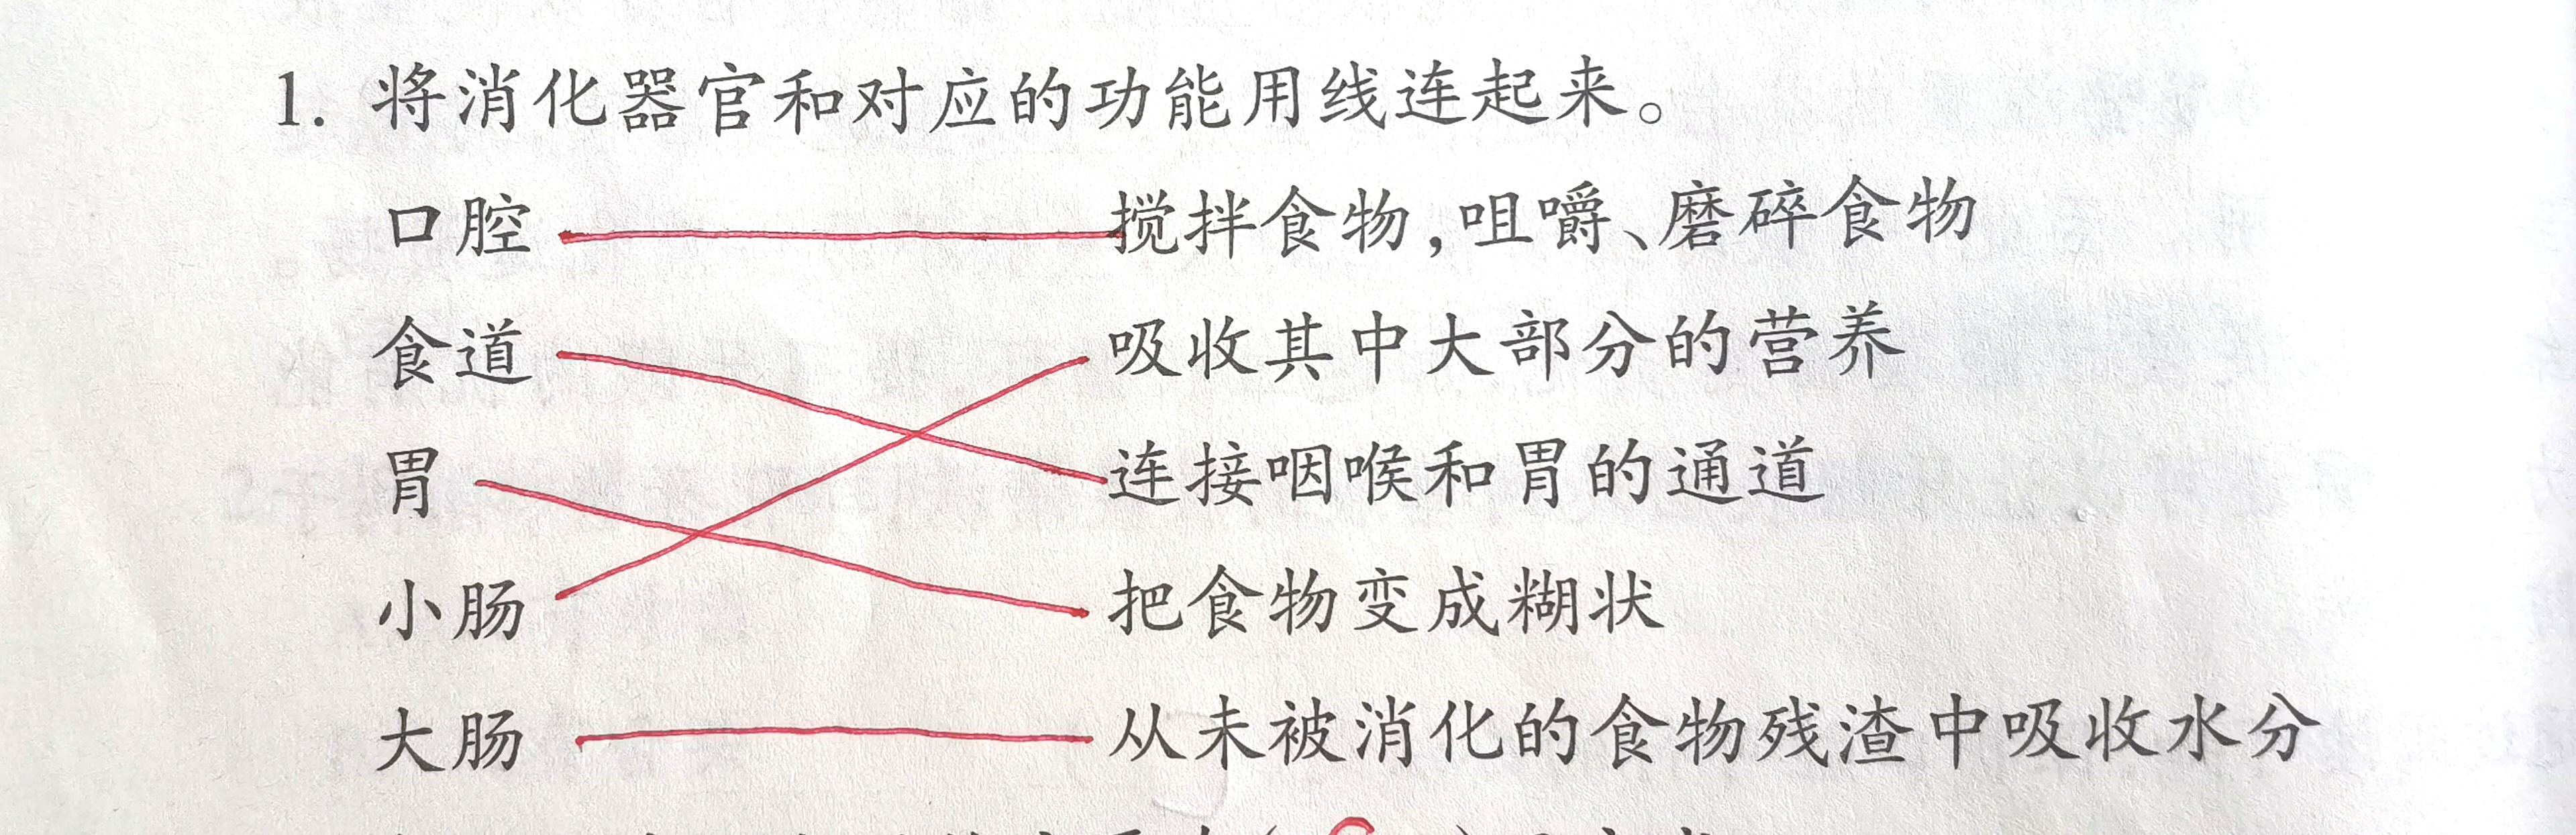 1. 将消化器官和对应的功能用线连起来。
口腔 搅拌食物,咀嚼、磨碎食物
食道 吸收其中大部分的营养
胃 连接咽喉和胃的通道
小肠 把食物变成糊状
大肠 从未被消化的食物残渣中吸收水分